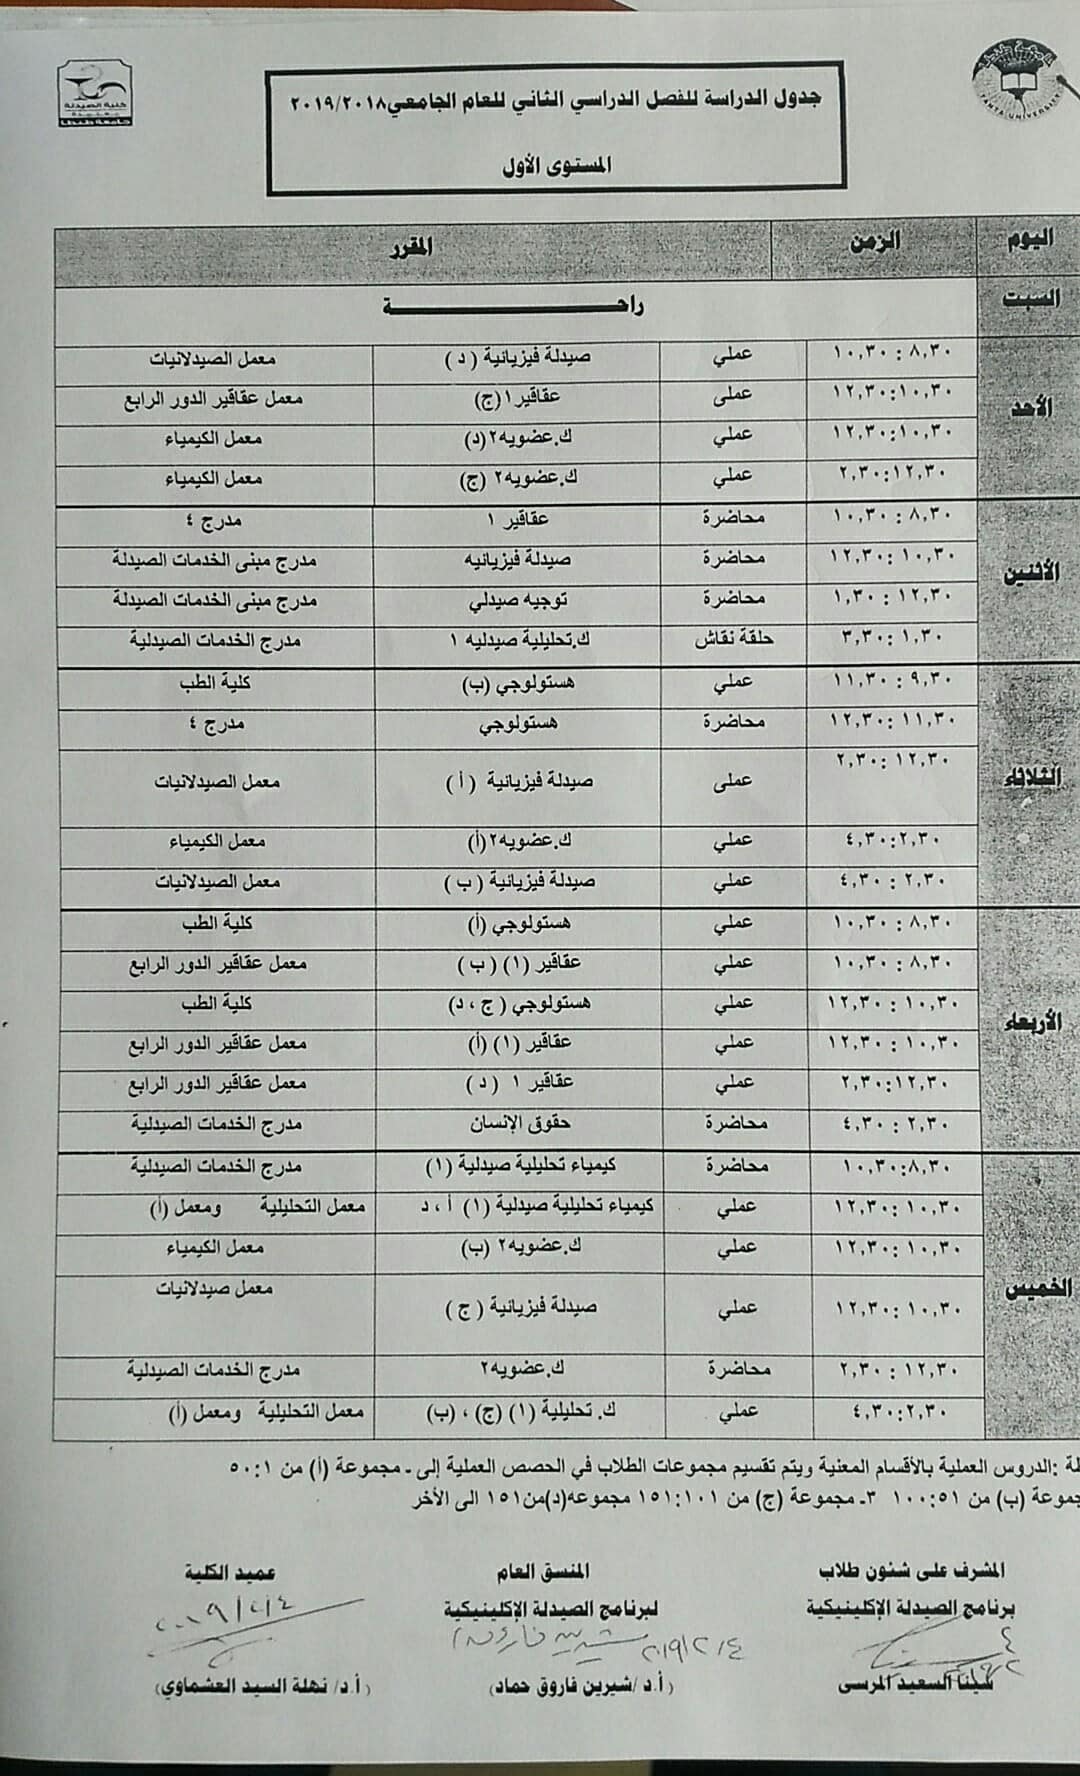 كلية الصيدلة
جامعة طنطا
TANTA UNIVERSITY
جدول الدراسة للفصل الدراسي الثاني للعام الجامعي ٢٠١٩/٢٠١٨
المستوى الأول
اليوم الزمن المقرر
السبت راحـــــة
الأحد
٨,٣٠ : ١٠,٣٠ عملي صيدلة فيزيانية ( د ) معمل الصيدلانيات
١٠,٣٠:١٢,٣٠ عملى عقاقير ١(ج) معمل عقاقير الدور الرابع
١٠,٣٠:١٢,٣٠ عملي ك.عضويه٢(د) معمل الكيمياء
١٢,٣٠:٢,٣٠ عملي ك.عضويه٢ (ج) معمل الكيمياء
الأثنين
٨,٣٠ : ١٠,٣٠ محاضرة عقاقير ١ مدرج ٤
١٠,٣٠ :١٢,٣٠ محاضرة صيدلة فيزيانيه مدرج مبنى الخدمات الصيدلة
١٢,٣٠ : ١,٣٠ محاضرة توجيه صيدلي مدرج مبنى الخدمات الصيدلة
١,٣٠ :٣,٣٠ حلقة نقاش ك.تحليلية صيدليه ١ مدرج الخدمات الصيدلية
الثلاثاء
٩,٣٠ : ١١,٣٠ عملي هستولوجي (ب) كلية الطب
١١,٣٠ :١٢,٣٠ محاضرة هستولوجي مدرج ٤
١٢,٣٠ :٢,٣٠ عملى صيدلة فيزيانية ( أ ) معمل الصيدلانيات
٢,٣٠:٤,٣٠ عملي ك.عضويه٢(أ) معمل الكيمياء
٢,٣٠ : ٤,٣٠ عملي صيدلة فيزيانية ( ب ) معمل الصيدلانيات
الأربعاء
٨,٣٠ : ١٠,٣٠ عملي هستولوجي (أ) كلية الطب
٨,٣٠ : ١٠,٣٠ عملي عقاقير (١) ( ب ) معمل عقاقير الدور الرابع
١٠,٣٠ : ١٢,٣٠ عملي هستولوجي ( ج ، د) كلية الطب
١٠,٣٠ : ١٢,٣٠ عملي عقاقير (١) (أ) معمل عقاقير الدور الرابع
١٢,٣٠:٢,٣٠ عملي عقاقير ١ ( د ) معمل عقاقير الدور الرابع
٢,٣٠ : ٤,٣٠ محاضرة حقوق الإنسان مدرج الخدمات الصيدلية
الخميس
٨,٣٠:١٠,٣٠ محاضرة كيمياء تحليلية صيدلية (١) مدرج الخدمات الصيدلية
١٠,٣٠ :١٢,٣٠ عملي كيمياء تحليلية صيدلية (١) أ ، د معمل التحليلية ومعمل (أ)
١٠,٣٠ :١٢,٣٠ عملي ك.عضويه٢ (ب) معمل الكيمياء
١٠,٣٠ : ١٢,٣٠ عملي صيدلة فيزيانية ( ج ) معمل صيدلانيات
١٢,٣٠ : ٢,٣٠ محاضرة ك.عضويه٢ مدرج الخدمات الصيدلية
٢,٣٠:٤,٣٠ عملي ك. تحليلية (١) (ج) ، (ب) معمل التحليلية ومعمل (أ)
ظة :الدروس العملية بالأقسام المعنية ويتم تقسيم مجموعات الطلاب في الحصص العملية إلى ـ مجموعة (أ) من ٥٠:١
جموعة (ب) من ٥١:١٠٠ ٣ـ مجموعة (ج) من ١٠١:١٥١ مجموعه(د)من١٥١ الى الأخر
المشرف على شئون طلاب المنسق العام عميد الكلية
برنامج الصيدلة الإكلينيكية لبرنامج الصيدلة الإكلينيكية ٢٠١٩/٢/٤
شيرين فاروق ٢٠١٩/٢/٤
السعيد المرسى (أ.د /شيرين فاروق حماد) (أ.د/ نهلة السيد العشماوي)